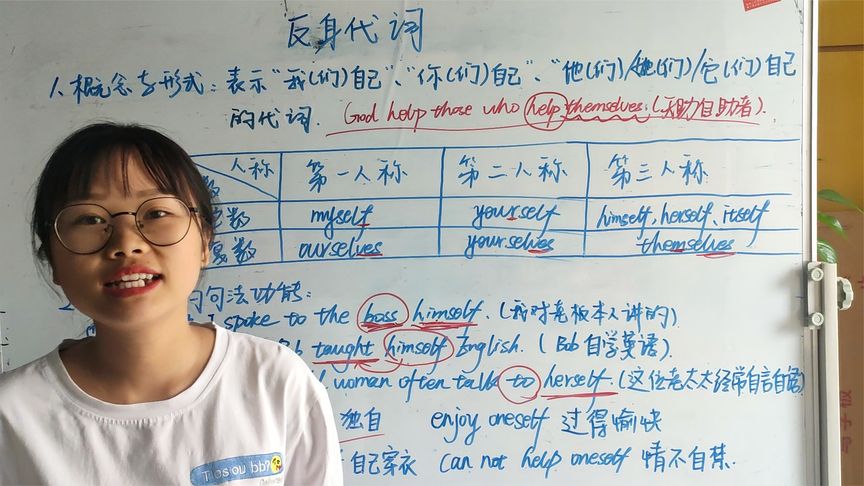 反身代词
1、概念与形式：表示“我(们)自己”、“你(们)自己”、“他(们)/她(们)/它(们)自己
的代词. God help those who help themselves.(天助自助者).
人称 第一人称 第二人称 第三人称
数
数 myself yourself himself, herself, itself
复数 ourselves yourselves themselves
句法功能：
I spoke to the boss himself. (我对老板本人讲的)
taught himself English. (Bob 自学英语)
woman often talks to herself. (这位老太太经常自言自语)
独自 enjoy oneself 过得愉快
自己穿衣 can not help oneself 情不自禁.